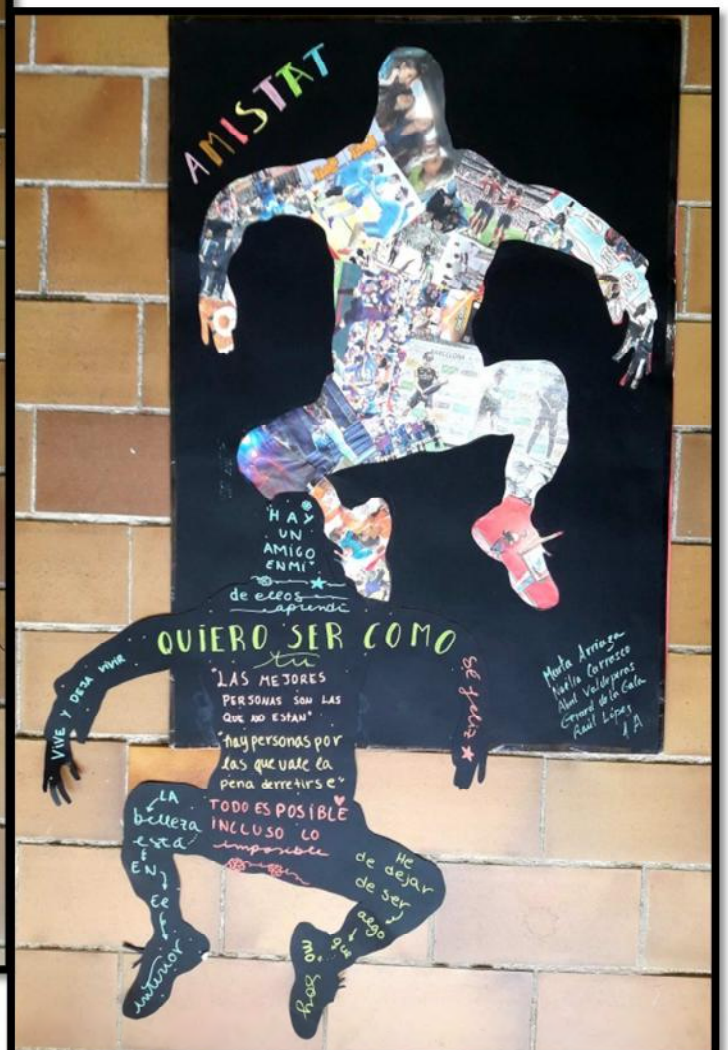 AMISTAT
BARCELONA
HAY
UN
AMIGO
EN MI"
de ellos
aprendí
QUIERO SER COMO
tu
"LAS MEJORES
PERSONAS SON LAS
QUE NO ESTAN"
"hay personas por
las que vale la
pena derretirse"
TODO ES POSIBLE
INCLUSO LO
imposible
VIVE Y DEJA VIVIR
Sé feliz
LA
belleza
está
EN
El
interior
He
de dejar
de ser
algo
que
no
hoy
Marta Arriaza
Noelia Carrasco
Abel Valdeperas
Gerard de la Gala
Raúl López
1A